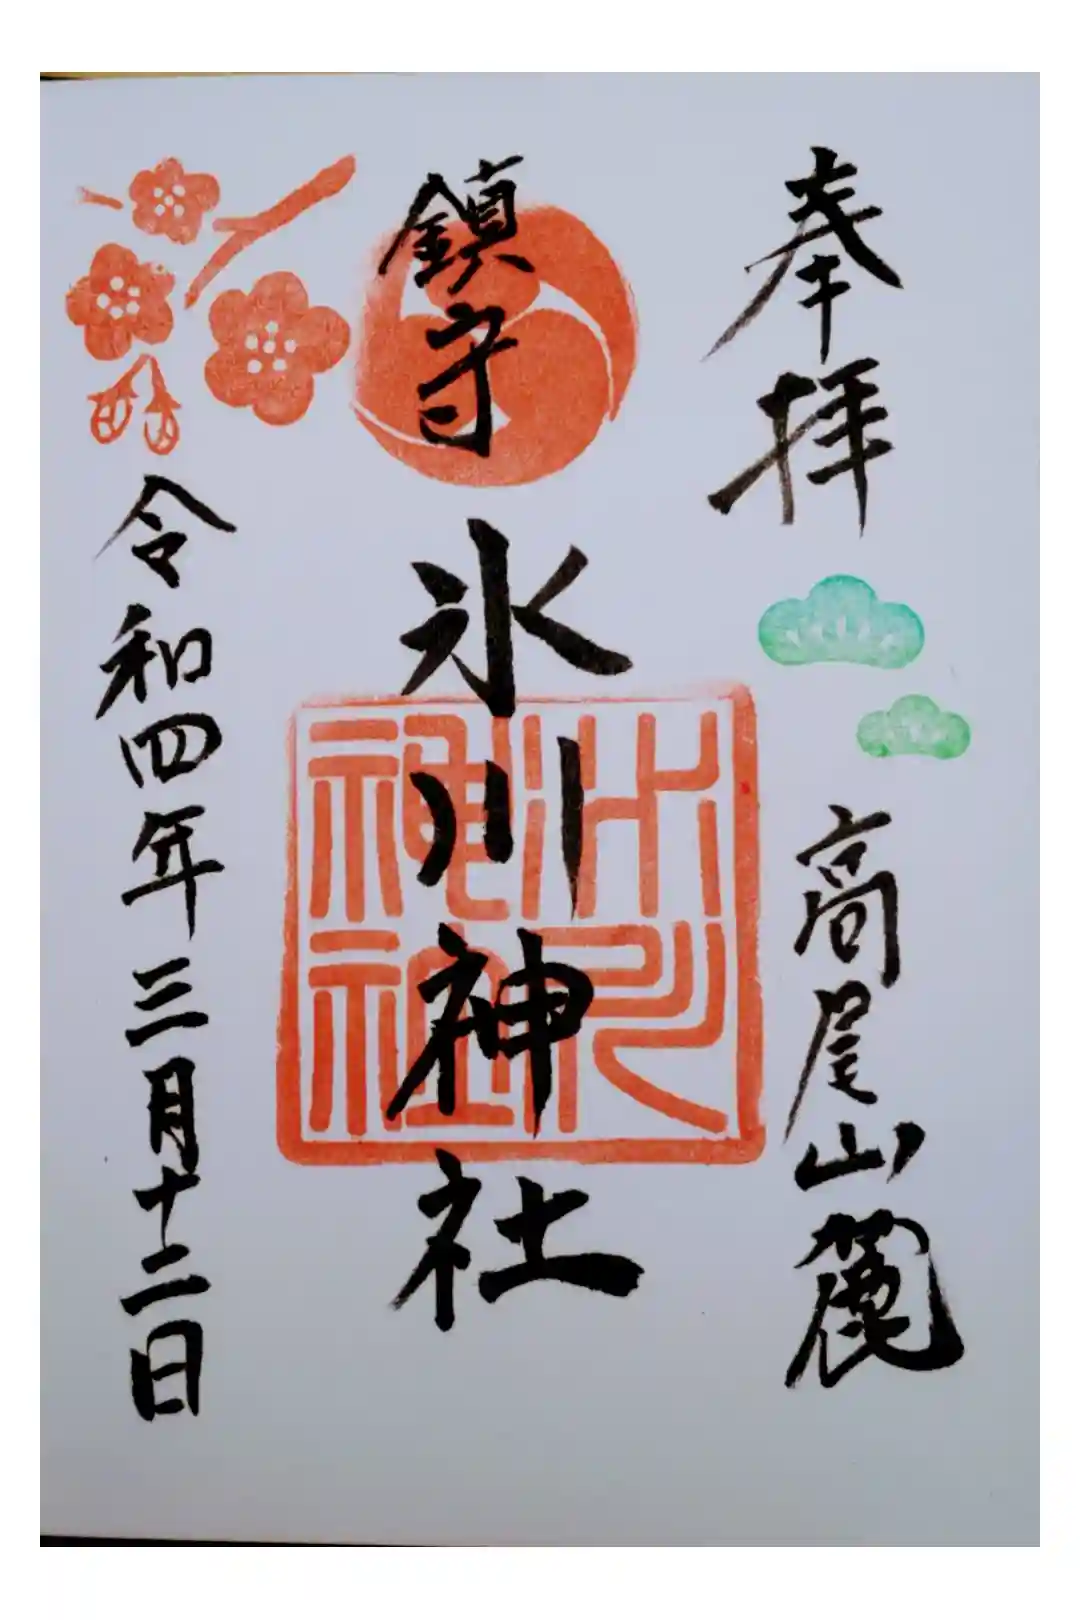 奉拝
高尾山麓
鎮守
氷川神社
氷川神社
令和四年三月十二日